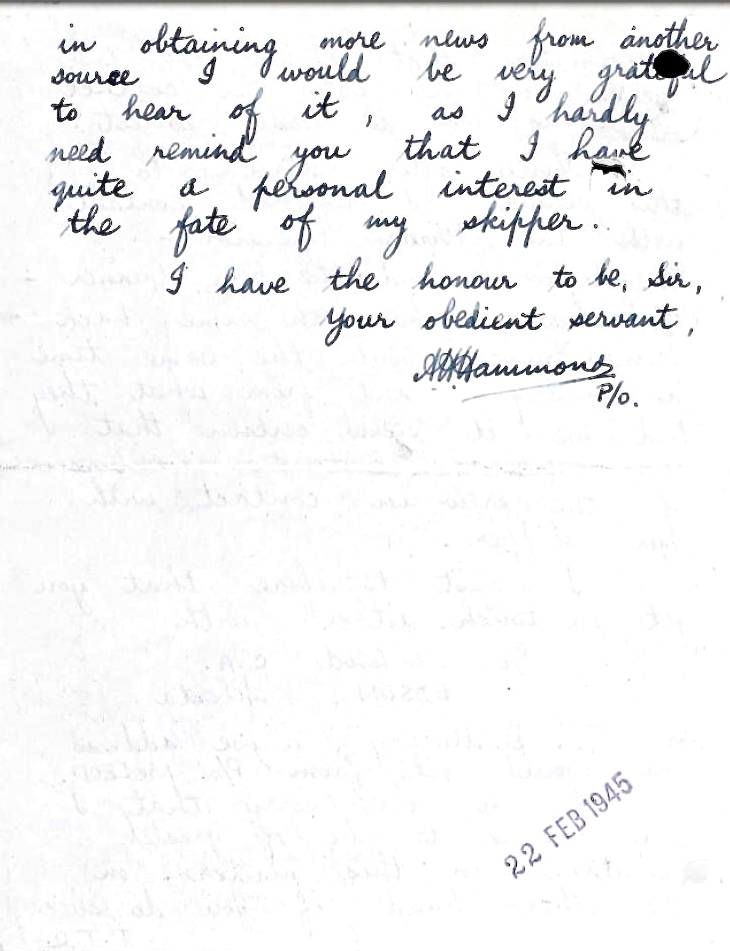 in obtaining more news from another
source I would be very grateful
to hear of it, as I hardly
need remind you that I have
quite a personal interest in
the fate of my skipper.
I have the honour to be, Sir,
Your obedient servant,
AHHammond
P/O.
22 FEB 1945